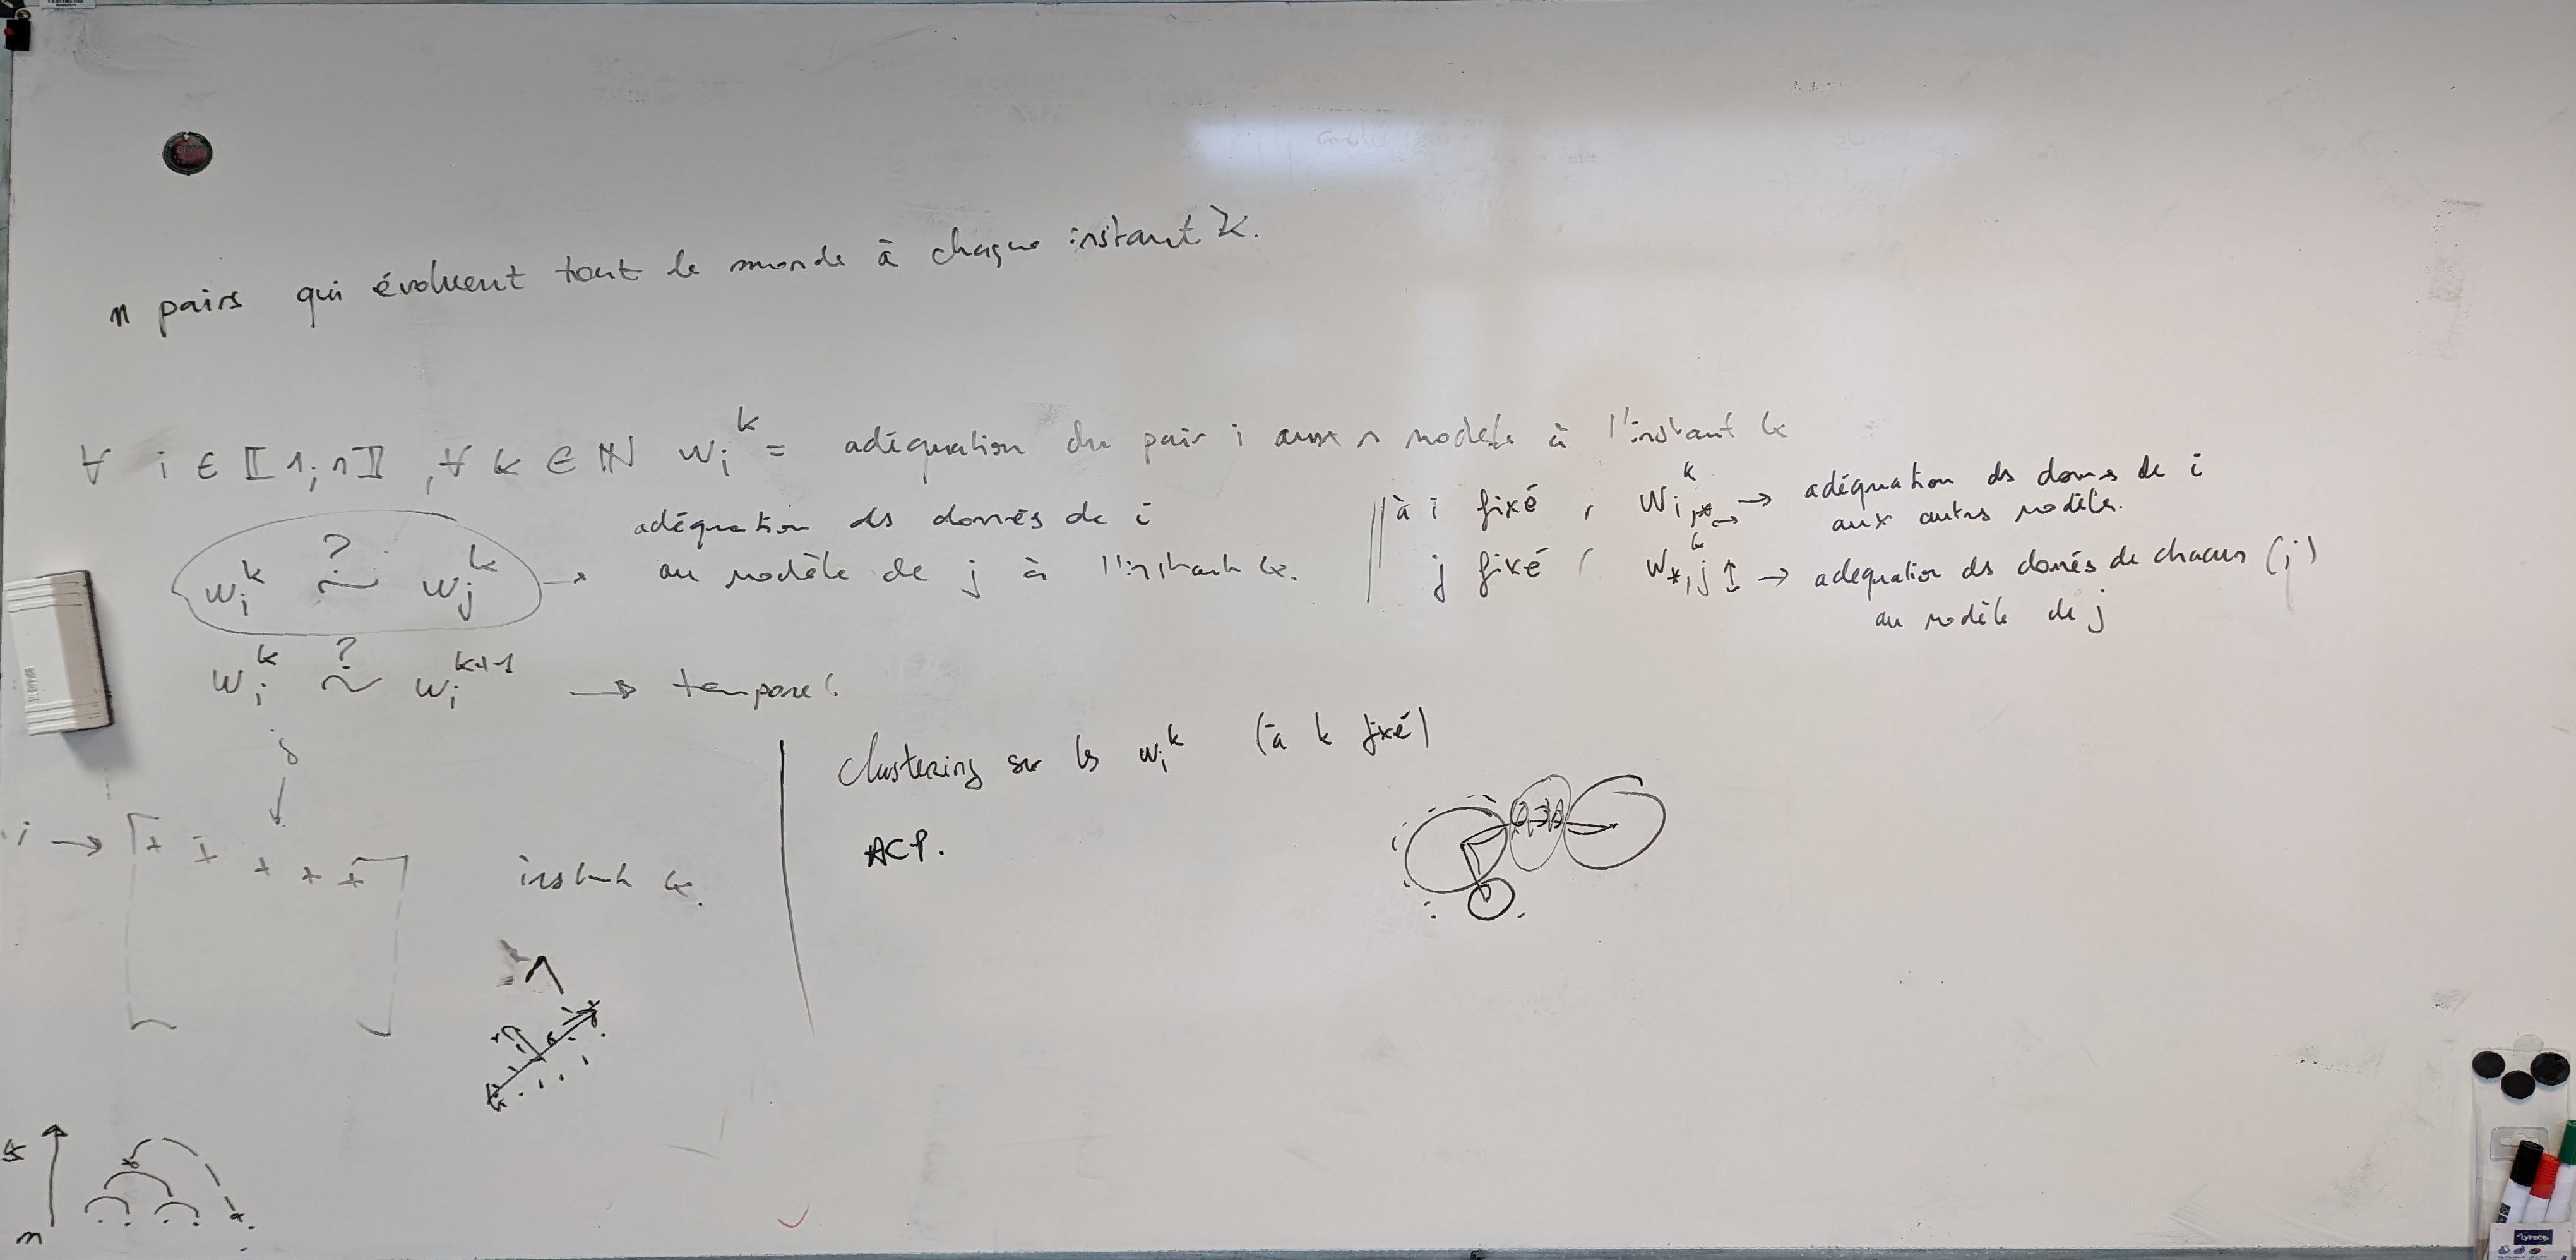 n pairs qui évoluent tout le monde à chaque instant k.
∀ i ∈ ⟦1;n⟧, ∀ k ∈ ℕ w_i^k = adéquation du pair i aux n modèle à l'instant k
w_i^k ?~ w_j^k → adéquation ds donnés de i
au modèle de j à l'instant k.
à i fixé, w_{i,*}^k ↔ → adéquation ds donnés de i
aux autres modèles.
j fixé, w_{*,j}^k ↕ → adéquation ds donnés de chacun (i)
au modèle de j
w_i^k ?~ w_i^{k+1} → temporel.
j
↓
i → [+ + + + +] instant k.
Clustering sur ls w_i^k (à k fixé)
ACP.
n
Lyreco